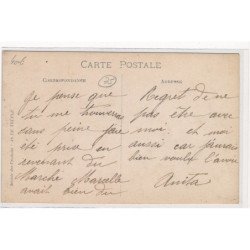 CARTE POSTALE
CORRESPONDANCE
ADRESSE
25
Je pense que
tu me trouveras
sans peine
été prise en
revenant du
Marché Marcelle
avait bien du
Regret de ne
pas être avec
moi. et moi
aussi car j'aurais
bien voulu l'avoir
Anita